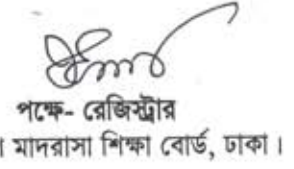 পক্ষে- রেজিস্ট্রার
মাদরাসা শিক্ষা বোর্ড, ঢাকা।